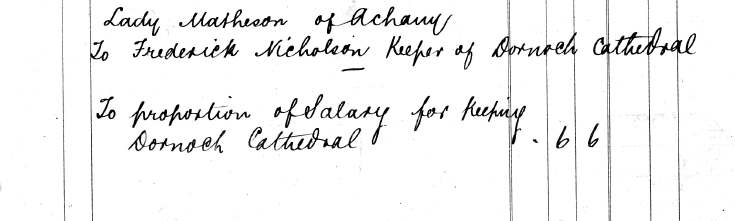 Lady Matheson of Achany
To Frederick Nicholson Keeper of Dornoch Cathedral
To proportion of Salary for Keeping
Dornoch Cathedral . 6 6